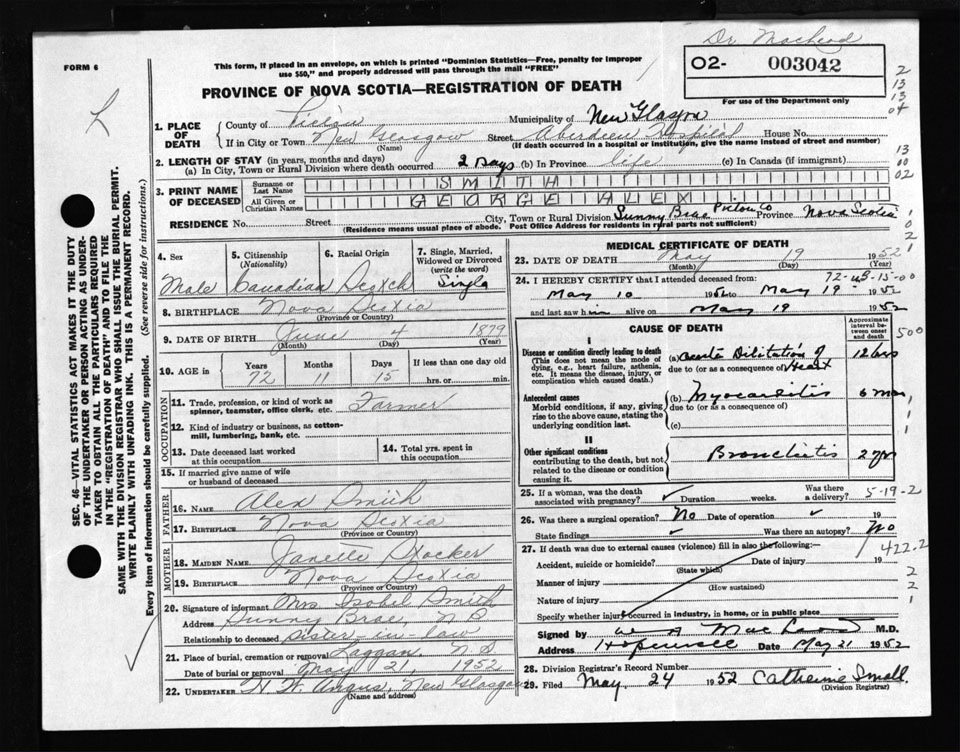 Dr MacLeod
FORM 6
This form, if placed in an envelope, on which is printed "Dominion Statistics—Free, penalty for improper
use $50," and properly addressed will pass through the mail "FREE"
02- 003042
PROVINCE OF NOVA SCOTIA—REGISTRATION OF DEATH
For use of the Department only
1. PLACE OF DEATH
County of Pictou Municipality of New Glasgow
If in City or Town New Glasgow Street Aberdeen Hospital House No.
(Name) (If death occurred in a hospital or institution, give the name instead of street and number)
2. LENGTH OF STAY (in years, months and days)
(a) In City, Town or Rural Division where death occurred 2 Days (b) In Province life (c) In Canada (if immigrant)
3. PRINT NAME OF DECEASED
Surname or Last Name SMITH
All Given or Christian Names GEORGE ALEX
RESIDENCE No. Street City, Town or Rural Division Sunny Brae Pictou Co Province Nova Scotia
(Residence means usual place of abode. Post Office Address for residents in rural parts not sufficient)
SEC. 46—VITAL STATISTICS ACT MAKES IT THE DUTY
OF THE UNDERTAKER OR PERSON ACTING AS UNDER-
TAKER TO OBTAIN ALL THE PARTICULARS REQUIRED
IN THE "REGISTRATION OF DEATH" AND TO FILE THE
SAME WITH THE DIVISION REGISTRAR WHO SHALL ISSUE THE BURIAL PERMIT.
WRITE PLAINLY WITH UNFADING INK. THIS IS A PERMANENT RECORD.
Every item of information should be carefully supplied. (See reverse side for instructions.)
4. Sex Male
5. Citizenship (Nationality) Canadian
6. Racial Origin Scotch
7. Single, Married, Widowed or Divorced (write the word) Single
8. BIRTHPLACE Nova Scotia
(Province or Country)
9. DATE OF BIRTH June 4 1879
(Month) (Day) (Year)
10. AGE in Years 72 Months 11 Days 15 If less than one day old hrs. or min.
OCCUPATION
11. Trade, profession, or kind of work as
spinner, teamster, office clerk, etc. Farmer
12. Kind of industry or business, as cotton-
mill, lumbering, bank, etc.
13. Date deceased last worked
at this occupation
14. Total yrs. spent in
this occupation
15. If married give name of wife
or husband of deceased
FATHER
16. NAME Alex Smith
17. BIRTHPLACE Nova Scotia
(Province or Country)
MOTHER
18. MAIDEN NAME Janette
19. BIRTHPLACE Nova Scotia
(Province or Country)
20. Signature of informant Mrs. Isobel Smith
Address Sunny Brae, N.S.
Relationship to deceased sister-in-law
21. Place of burial, cremation or removal Laggan, N.S.
Date of burial or removal May 21, 1952
22. UNDERTAKER H. W. Angus, New Glasgow
(Name and address)
MEDICAL CERTIFICATE OF DEATH
23. DATE OF DEATH May 19 1952
(Month) (Day) (Year)
24. I HEREBY CERTIFY that I attended deceased from:
May 10 1952 to May 19 1952
and last saw him alive on May 19 1952
CAUSE OF DEATH
Approximate interval between onset and death
I
Disease or condition directly leading to death
(This does not mean the mode of
dying, e.g., heart failure, asthenia,
etc. It means the disease, injury, or
complication which caused death.)
(a) Acute Dilitation of Heart 12 hrs
due to (or as a consequence of)
Antecedent causes
Morbid conditions, if any, giving
rise to the above cause, stating the
underlying condition last.
(b) Myocarditis 6 mos
due to (or as a consequence of)
(c)
II
Other significant conditions
contributing to the death, but not
related to the disease or condition
causing it.
Bronchitis 2 yrs
25. If a woman, was the death
associated with pregnancy? Duration weeks. Was there a delivery? 5-19-2
26. Was there a surgical operation? No Date of operation 19
State findings Was there an autopsy? No
27. If death was due to external causes (violence) fill in also the following:—
422.2
Accident, suicide or homicide? Date of injury 19
(State which)
Manner of injury
(How sustained)
Nature of injury
Specify whether injury occurred in industry, in home, or in public place
Signed by A MacLeod M.D.
Address Hopewell Date May 21 1952
28. Division Registrar's Record Number
29. Filed May 24 1952 Catherine Small
(Division Registrar)